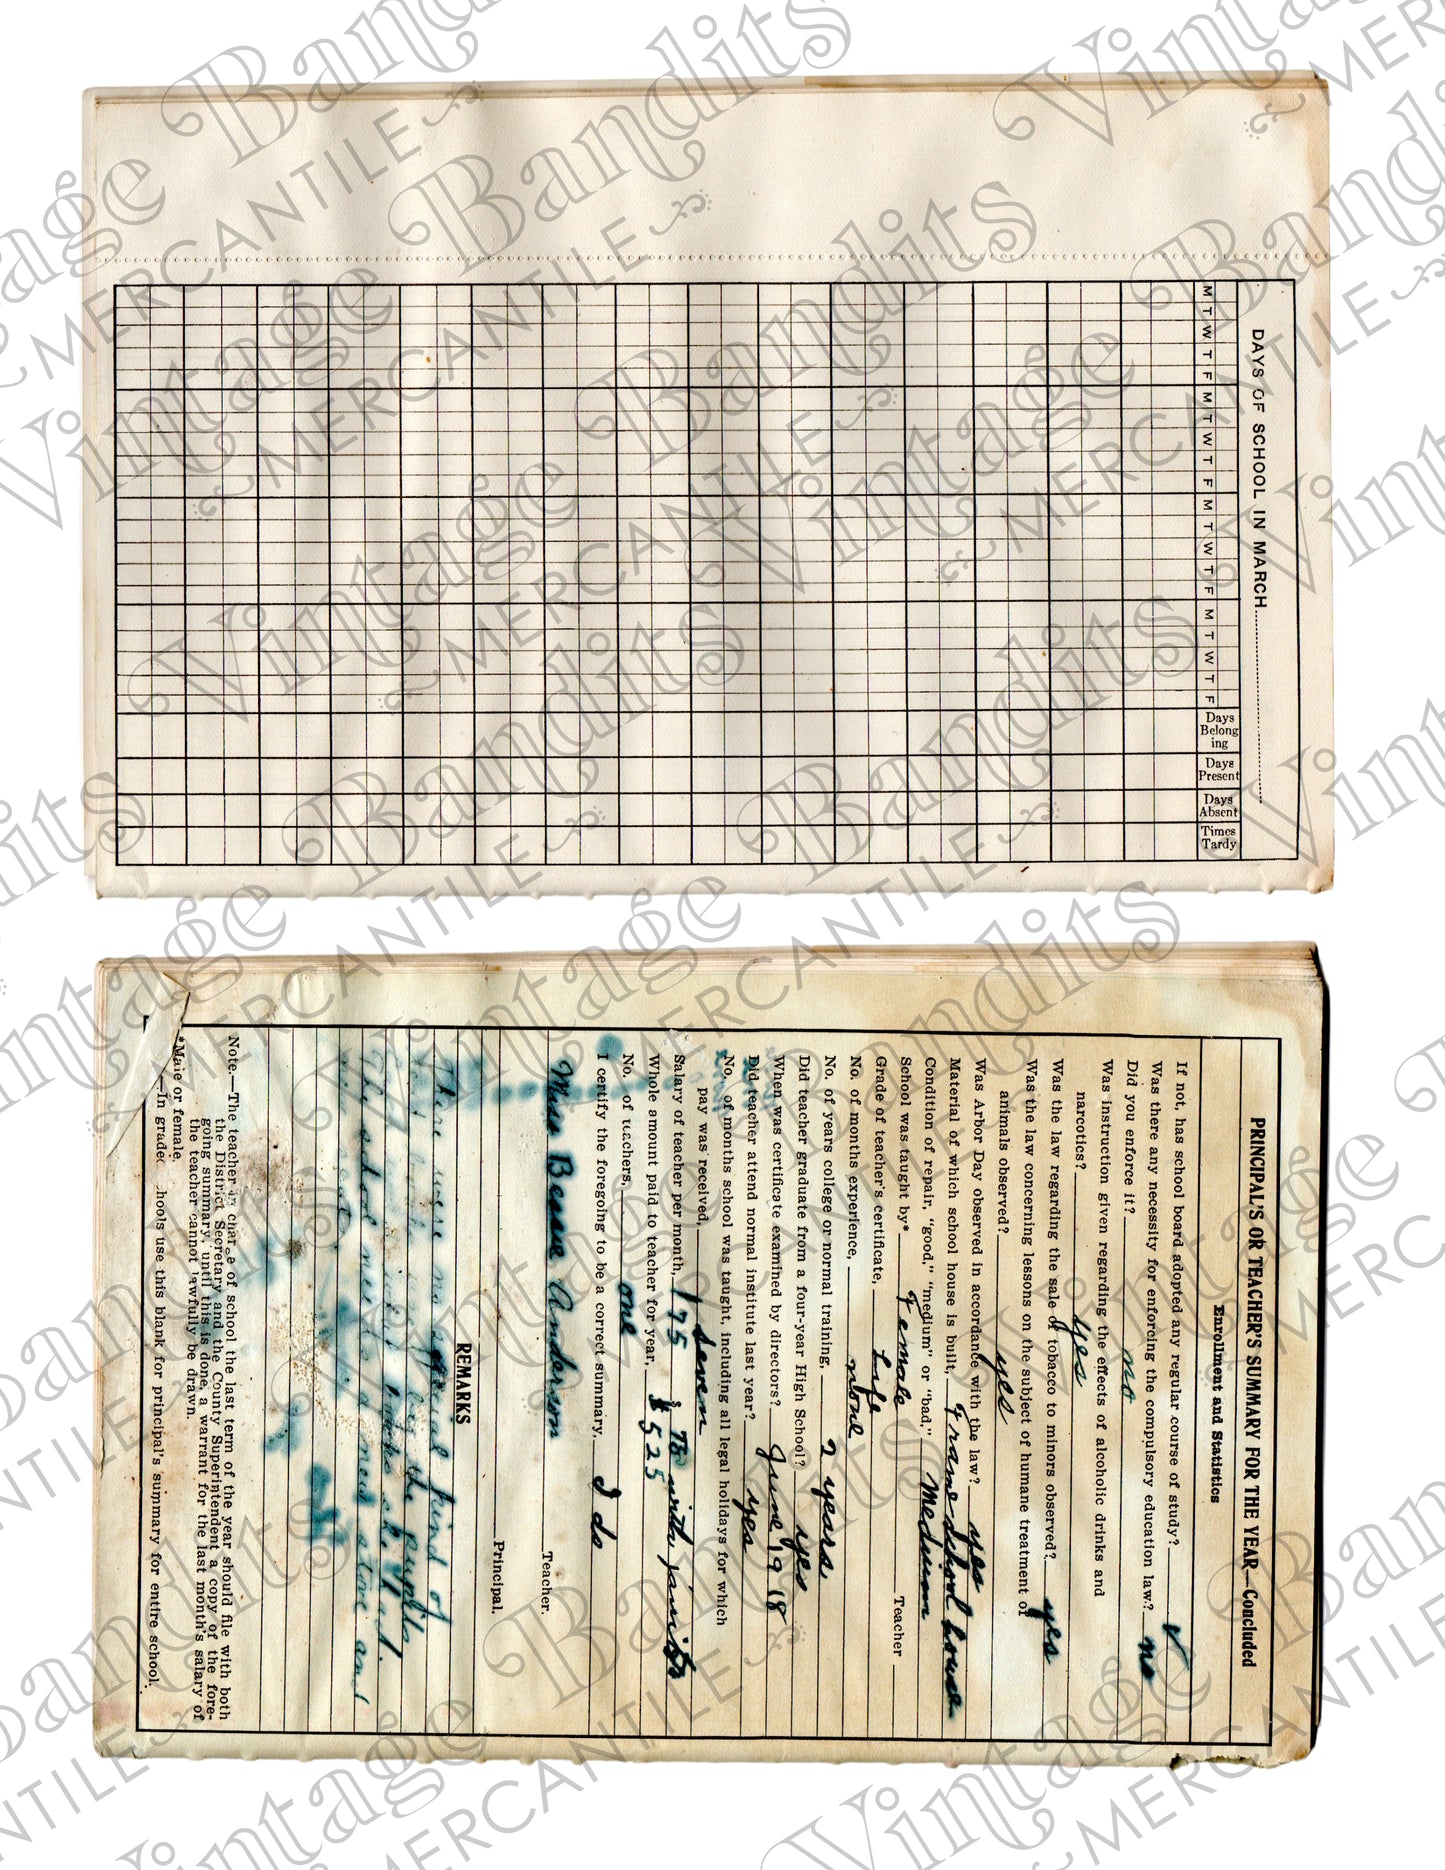 DAYS OF SCHOOL IN MARCH
M T W T F M T W T F M T W T F M T W T F Days Belong ing Days Present Days Absent Times Tardy
PRINCIPAL'S OR TEACHER'S SUMMARY FOR THE YEAR—Concluded
Enrollment and Statistics
If not, has school board adopted any regular course of study?
Was there any necessity for enforcing the compulsory education law? no
Did you enforce it? no
Was instruction given regarding the effects of alcoholic drinks and
narcotics? yes
Was the law regarding the sale of tobacco to minors observed? yes
Was the law concerning lessons on the subject of humane treatment of
animals observed? yes
Was Arbor Day observed in accordance with the law? yes
Material of which school house is built, Frame school house
Condition of repair, "good," "medium" or "bad," Medium
School was taught by* Female Teacher
Grade of teacher's certificate, Life
No. of months experience, none
No. of years college or normal training, 2 years
Did teacher graduate from a four-year High School? yes
When was certificate examined by directors? June 1918
Did teacher attend normal institute last year? yes
No. of months school was taught, including all legal holidays for which
pay was received, seven
Salary of teacher per month, $75 $ 75 with
Whole amount paid to teacher for year, $525
No. of teachers, one
I certify the foregoing to be a correct summary, I do
Miss Bessie Anderson Teacher.
Principal.
REMARKS
There were no kind of
the pupils
The school needs a new stove and
Note.—The teacher in charge of school the last term of the year should file with both
the District Secretary and the County Superintendent a copy of the fore-
going summary, until this is done, a warrant for the last month's salary of
the teacher cannot lawfully be drawn.
*Male or female.
—In graded schools use this blank for principal's summary for entire school.
Vintage Bandits
MERCANTILE